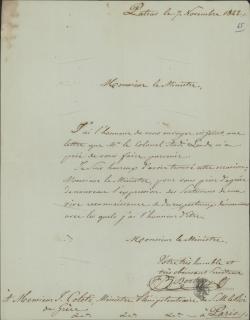 Patras le 7 Novembre 1842
Monsieur le Ministre,
J'ai l'honneur de vous envoyer ci-joint une
lettre que Mr le Colonel
prié de vous faire parvenir.
Je suis heureux d'avoir trouvé cette occasion,
Monsieur le Ministre, pour vous prier d'agréer
de nouveau l'expression des sentimens de ma
vive reconnaissance et du respectueux dévouement
avec lesquels j'ai l'honneur d'être
Monsieur le Ministre,
Votre très humble et
très obéissant serviteur
A Monsieur J. Coletti, Ministre Plénipotentiaire de S. M. le Roi
de Grèce
Paris